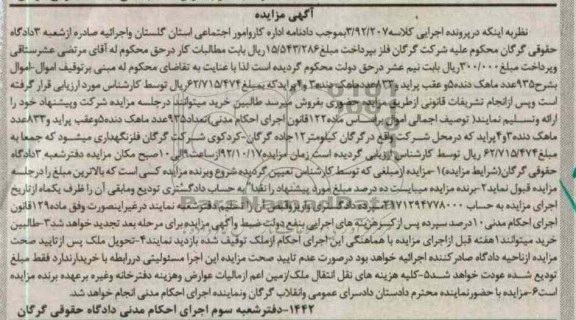 آگهی مزایده
نظر به اینکه در پرونده اجرایی کلاسه ۳/۹۲/۲۰۷ بموجب دادنامه اداره کار و امور اجتماعی استان گلستان و اجرائیه صادره از شعبه ۳ دادگاه
حقوقی گرگان محکوم علیه شرکت گرگان فلز بپرداخت مبلغ ۱۵/۵۴۳/۲۸۶ ریال بابت مطالبات کار در حق محکوم له آقای مرتضی عشرستاقی
وپرداخت مبلغ ۳۰۰/۰۰۰ ریال بابت نیم عشر در حق دولت محکوم گردیده است لذا با عنایت به تقاضای محکوم له مبنی بر توقیف اموال-اموال
بشرح ۹۳۵ عدد ماهک دنده ۵ و عقب پراید و ۸۳۳ عدد ماهک دنده ۳ و ۴ پراید که بمبلغ ۶۲/۷۱۵/۴۷۴ ریال توسط کارشناس مورد ارزیابی قرار گرفته
است وپس از انجام تشریفات قانونی از طریق مزایده حضوری بفروش میرسد طالبین خرید میتوانند در جلسه مزایده شرکت وپیشنهاد خود را
ارائه وتسلیم نمایند( توصیف اجمالی اموال براساس ماده ۱۲۲ قانون اجرای احکام مدنی)تعداد ۹۳۵ عدد ماهک دنده ۵ و عقب پراید و ۸۳۳ عدد
ماهک دنده ۳ و ۴ پراید که در محل شرکت واقع در گرگان کیلومتر ۱۲ جاده گرگان-کردکوی شرکت گرگان فلز نگهداری میشود که جمعا به
مبلغ ۶۲/۷۱۵/۴۷۴ ریال توسط کارشناس ارزیابی گردیده است زمان مزایده ۹۲/۱۰/۱۷ از ساعت ۹ الی ۱۰ صبح مکان مزایده دفتر شعبه ۳ دادگاه
حقوقی گرگان(شرایط مزایده)۱-مزایده از مبلغی که توسط کارشناس تعیین گردیده شروع وبرنده مزایده کسی است که بالاترین مبلغ را در جلسه
مزایده قبول نماید ۲-برنده مزایده میبایست ده درصد مبلغ مورد پیشنهاد را نقدا به حساب دادگستری تودیع ومابقی آن را ظرف یکماه از تاریخ
اجرای مزایده به حساب دادگستری واریز وفیش آن را تسلیم دفتر شعبه نمایند در غیر اینصورت وفق ماده ۱۲۹ قانون
اجرای احکام مدنی ۱۰ درصد سپرده پس از کسر هزینه های اجرایی بنفع دولت ضبط وآگهی مزایده برای مرحله بعد تجدید خواهد شد ۳-طالبین
خرید میتوانند ۱ هفته قبل از اجرای مزایده با هماهنگی این اجرای احکام از ملک توقیف شده بازدید نمایند ۴-تحویل ملک پس از تایید صحت
مزایده از ناحیه دادگاه صادر کننده اجرائیه خواهد بود در صورت عدم تایید صحت مزایده این اجرا مسئولیتی در رابطه با خریدار ندارد فقط مبلغ
تودیع شده عودت خواهد شد ۵-کلیه هزینه های نقل انتقال ملک/زمین اعم از مالیات عوارض وهزینه دفترخانه وغیره برعهده برنده مزایده
است ۶-مزایده با حضور نماینده محترم دادستان دادسرای عمومی وانقلاب گرگان ونماینده اجرای احکام مدنی انجام خواهد شد.
۱۴۴۲-دفتر شعبه سوم اجرای احکام مدنی دادگاه حقوقی گرگان